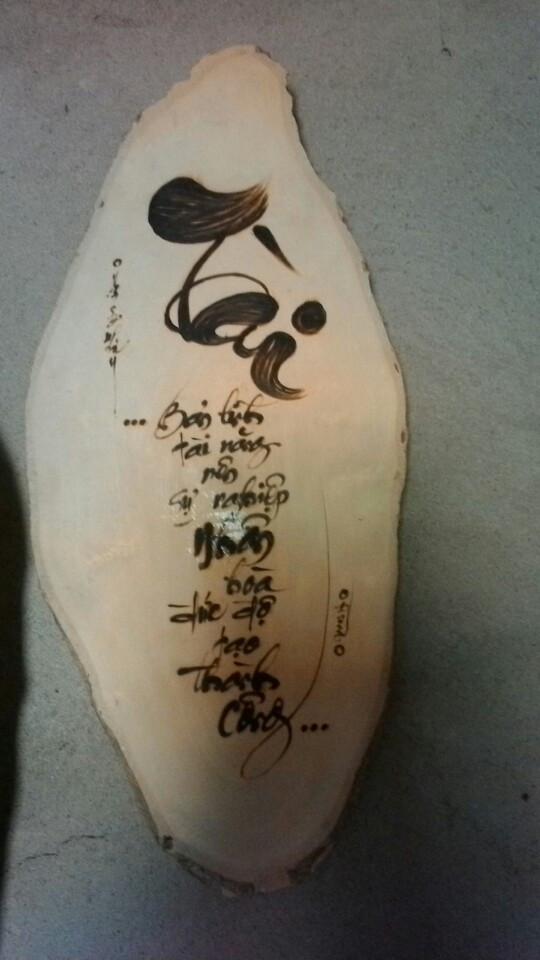 Tài
... Bản lĩnh
tài năng
nên
sự nghiệp
Nhân
hoà
đức độ
tạo
Thành
Công...